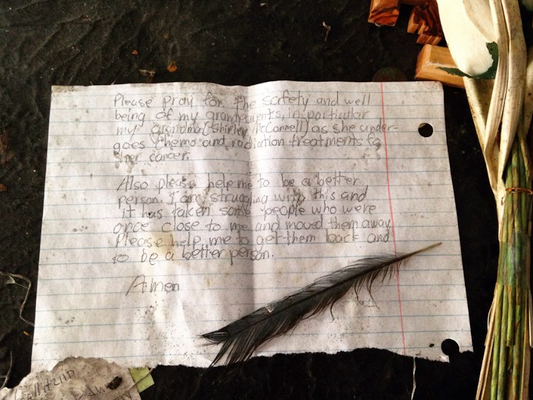 Please pray for the safety and well
being of my grandparents, in particular
my Grandma (Shirley McConnell) as she under-
goes chemo and radiation treatments fo
her cancer.
Also please help me to be a better
person. I am struggling with this and
it has taken some people who were
once close to me and moved them away
Please help me to get them back and
to be a better person.
Amen